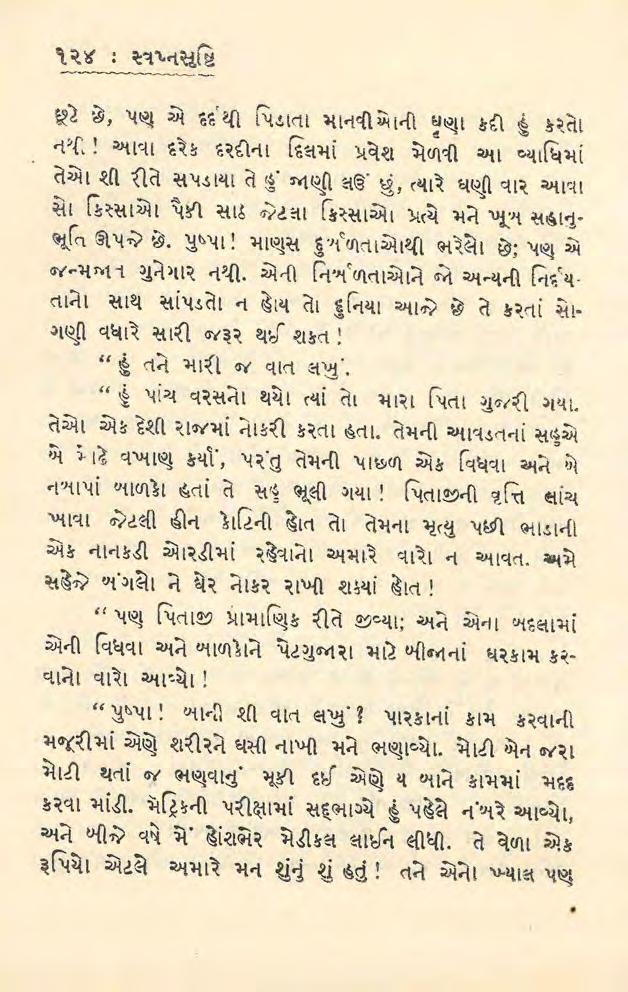 ૧૨૪ : સ્વપ્નસૃષ્ટિ
છૂટે છે, પણ એ દર્દથી પિડાતા માનવીઓની ઘૃણા કદી હું કરતો
નથી! આવા દરેક દરદીના દિલમાં પ્રવેશ મેળવી આ વ્યાધિમાં
તેઓ શી રીતે સપડાયા તે હું જાણી લઉં છું, ત્યારે ઘણી વાર આવા
સો કિસ્સાઓ પૈકી સાઠ જેટલા કિસ્સાઓ પ્રત્યે મને ખૂબ સહાનુ-
ભૂતિ ઊપજે છે. પુષ્પા! માણસ દુર્બળતાઓથી ભરેલો છે; પણ એ
જન્મજાત ગુનેગાર નથી. એની નિર્બળતાઓને જો અન્યની નિર્દય-
તાનો સાથ સાંપડતો ન હોય તો દુનિયા આજે છે તે કરતાં સો-
ગણી વધારે સારી જરૂર થઈ શકત!
“હું તને મારી જ વાત લખું.
“હું પાંચ વરસનો થયો ત્યાં તો મારા પિતા ગુજરી ગયા.
તેઓ એક દેશી રાજમાં નોકરી કરતા હતા. તેમની આવડતનાં સહુએ
બે મોઢે વખાણ કર્યાં, પરંતુ તેમની પાછળ એક વિધવા અને બે
નબાપાં બાળકો હતાં તે સહુ ભૂલી ગયા! પિતાજીની વૃત્તિ લાંચ
ખાવા જેટલી હીન કોટિની હોત તો તેમના મૃત્યુ પછી ભાડાની
એક નાનકડી ઓરડીમાં રહેવાનો અમારે વારો ન આવત. અમે
સહેજે બંગલો ને ઘેર નોકર રાખી શક્યાં હોત!
“પણ પિતાજી પ્રામાણિક રીતે જીવ્યા; અને એના બદલામાં
એની વિધવા અને બાળકોને પેટગુજારા માટે બીજાનાં ઘરકામ કર-
વાનો વારો આવ્યો!
“પુષ્પા! બાની શી વાત લખું? પારકાનાં કામ કરવાની
મજૂરીમાં એણે શરીરને ઘસી નાખી મને ભણાવ્યો. મોટી બેન જરા
મોટી થતાં જ ભણવાનું મૂકી દઈ એણે ય બાને કામમાં મદદ
કરવા માંડી. મેટ્રિકની પરીક્ષામાં સદ્ભાગ્યે હું પહેલે નંબરે આવ્યો,
અને બીજે વર્ષે મેં હોંશભેર મેડીકલ લાઈન લીધી. તે વેળા એક
રૂપિયો એટલે અમારે મન શુંનું શું હતું! તને એનો ખ્યાલ પણ